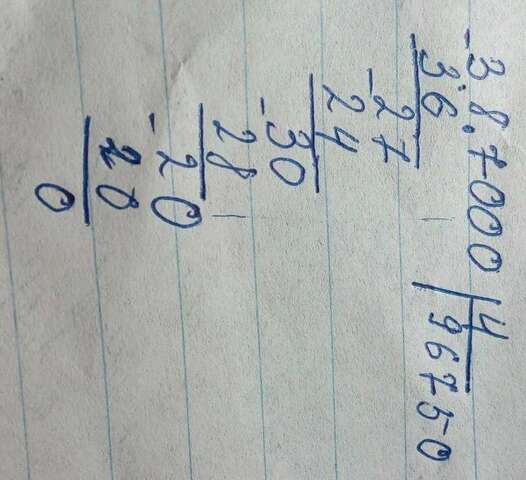 -38.7000 | 4
36 | 96750
-27
24
-30
28
-20
20
0